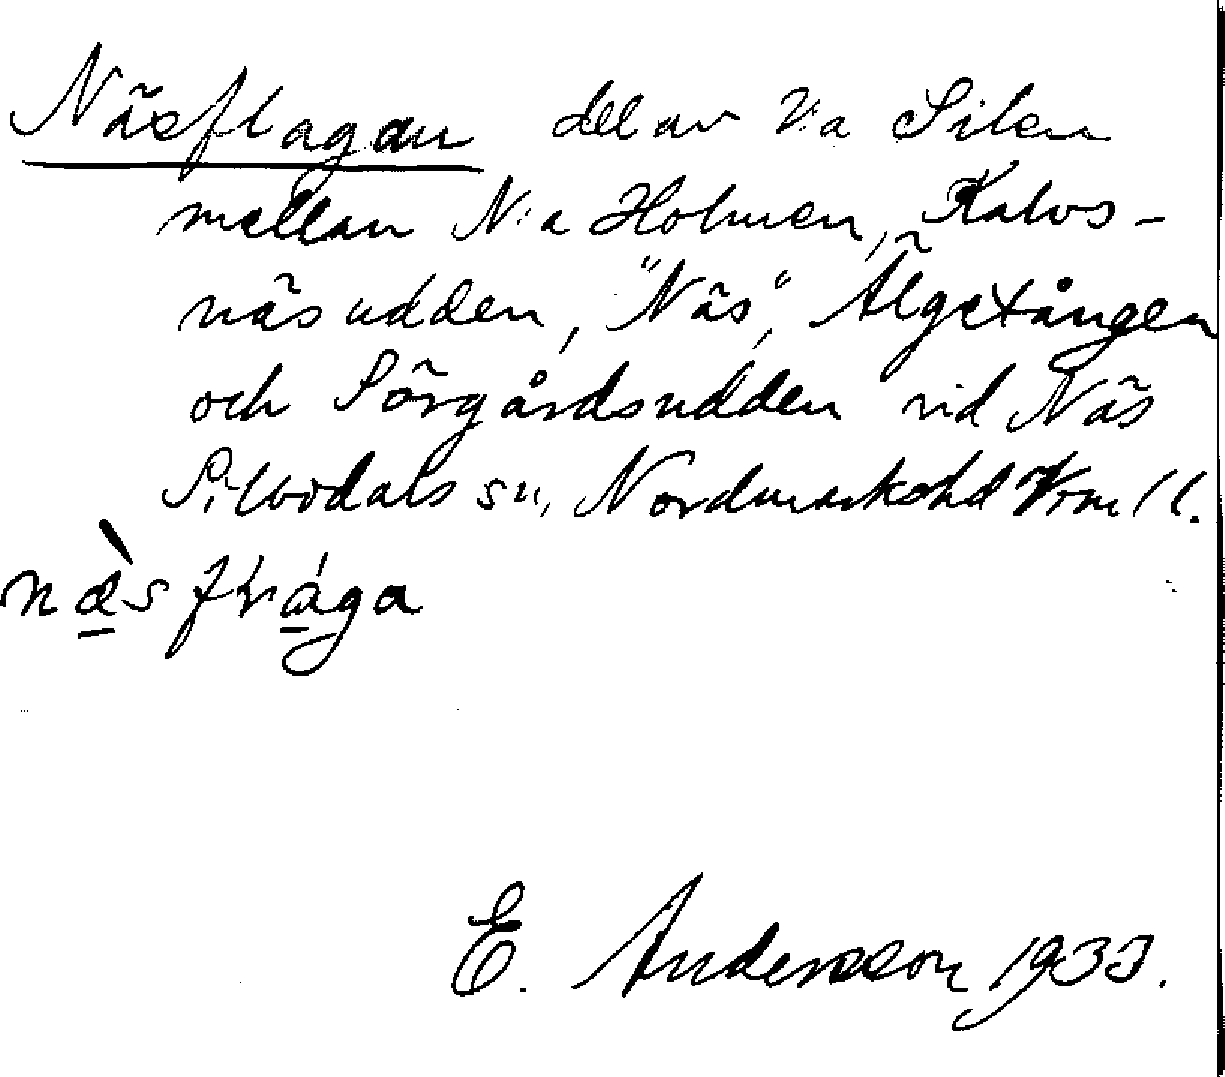 Näsflagan del av V:a Silen
mellan N:a Holmen, Kalvs-
näsudden, "Näs", Älgstången
och Sörgårdsudden vid Näs
Silbodals sn, Nordmarks hd Vrml.
næ̀sflága
E. Andersson 1933.